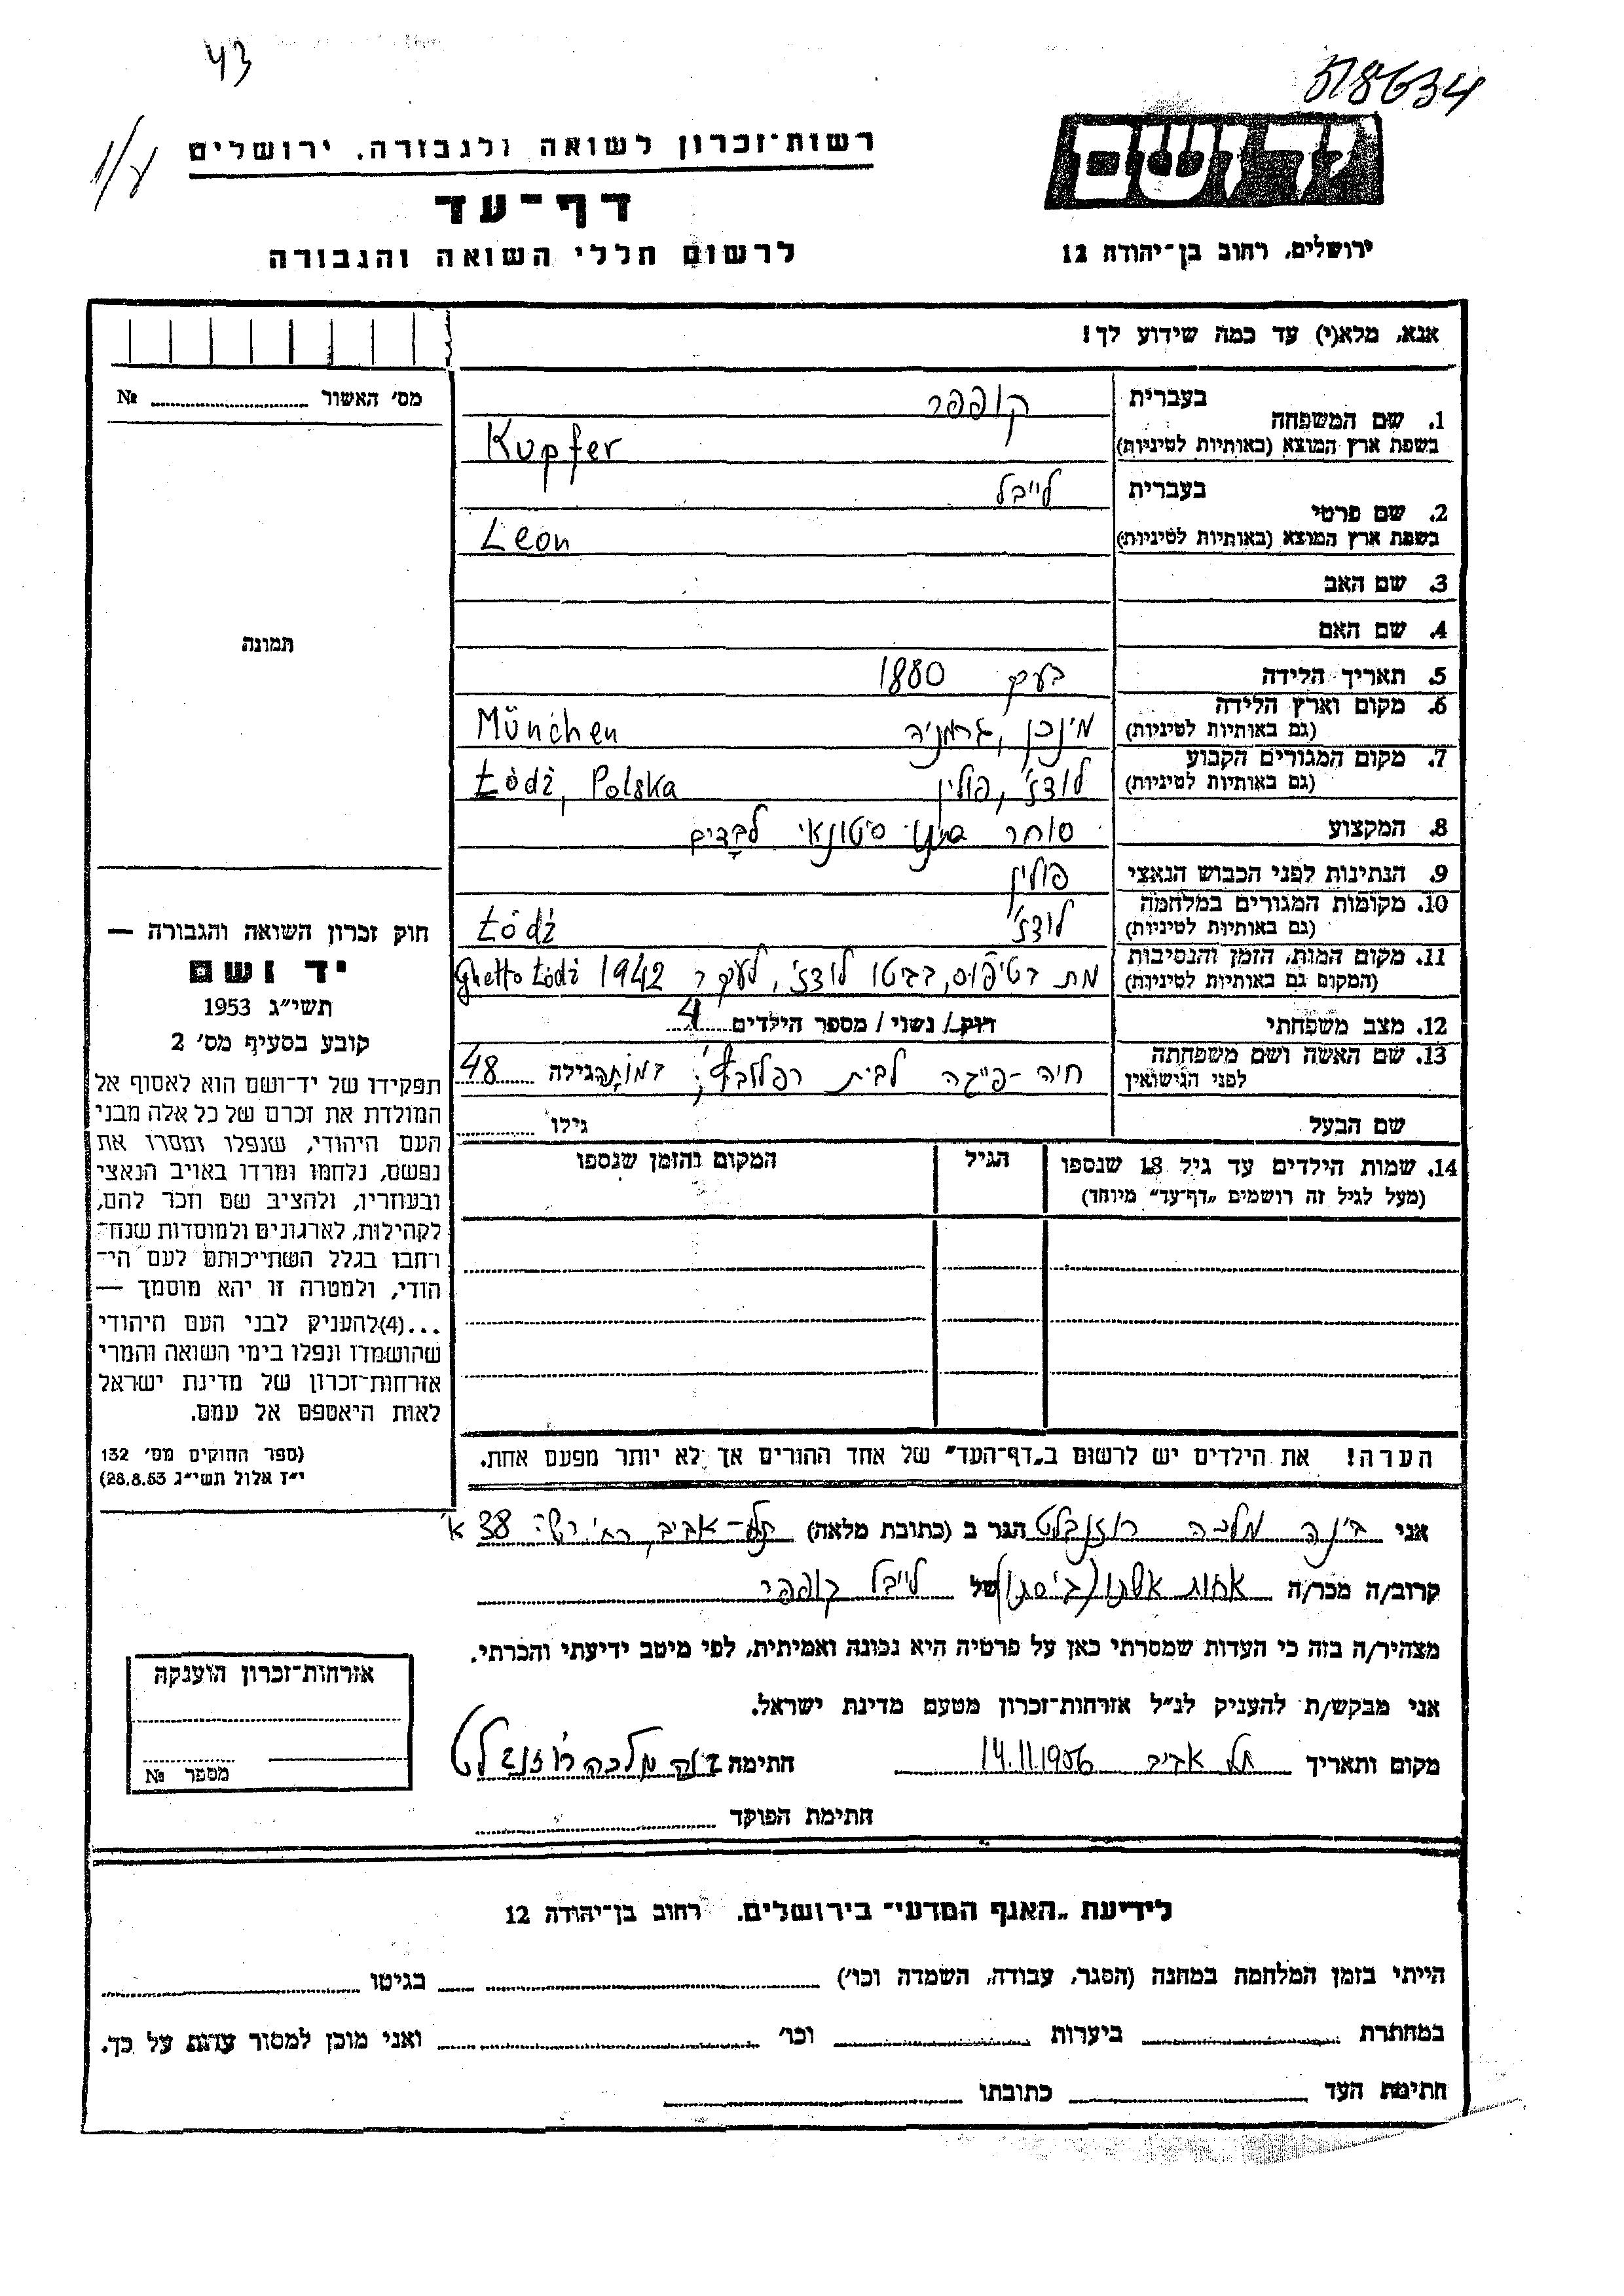 43
518634
1/8
רשות־זכרון לשואה ולגבורה, ירושלים
דף־עד
לרשום חללי השואה והגבורה
ידושם
ירושלים, רחוב בן־יהודה 12
אנא, מלא(י) עד כמה שידוע לך!
מס' האשור № 
תמונה
חוק זכרון השואה והגבורה —
יד ושם
תשי״ג 1953
קובע בסעיף מס' 2
תפקידו של יד־ושם הוא לאסוף אל
המולדת את זכרם של כל אלה מבני
העם היהודי, שנפלו ומסרו את
נפשם, נלחמו ומרדו באויב הנאצי
ובעוזריו, ולהציב שם וזכר להם,
לקהילות, לארגונים ולמוסדות שנח־
רבו בגלל השתייכותם לעם הי־
הודי, ולמטרה זו יהא מוסמך —
...(4)להעניק לבני העם היהודי
שהושמדו ונפלו בימי השואה והמרי
אזרחות־זכרון של מדינת ישראל
לאות היאספם אל עמם.
(ספר החוקים מס' 132
י״ז אלול תשי״ג 28.8.53)
1. שם המשפחה בעברית קופפר
בשפת ארץ המוצא (באותיות לטיניות) Kupfer
2. שם פרטי בעברית לייבל
בשפת ארץ המוצא (באותיות לטיניות) Leon
3. שם האב
4. שם האם
5. תאריך הלידה בערך 1880
6. מקום וארץ הלידה (גם באותיות לטיניות) מינכן, גרמניה München
7. מקום המגורים הקבוע (גם באותיות לטיניות) לודז', פולין Łódź, Polska
8. המקצוע סוחר סיטונאי לבדים
9. הנתינות לפני הכבוש הנאצי פולין
10. מקומות המגורים במלחמה (גם באותיות לטיניות) לודז' Łódź
11. מקום המות, הזמן והנסיבות (המקום גם באותיות לטיניות) מת בטיפוס, בגיטו לודז', 1942 Ghetto Łódź
12. מצב משפחתי רוק / נשוי / מספר הילדים 4
13. שם האשה ושם משפחתה לפני הנישואין חיה־פייגה לבית גילה 48
שם הבעל גילו
14. שמות הילדים עד גיל 18 שנספו (מעל לגיל זה רושמים „דף־עד״ מיוחד) הגיל המקום והזמן שנספו
הערה! את הילדים יש לרשום ב„דף־העד״ של אחד ההורים אך לא יותר מפעם אחת.
אני בינה מלכה רוזנבלט הגר ב (כתובת מלאה) תל־אביב, רח' רש״י 38 א'
קרוב/ה מכר/ה אחות אשתו (גיסתו) של לייבל קופפר
מצהיר/ה בזה כי העדות שמסרתי כאן על פרטיה היא נכונה ואמיתית, לפי מיטב ידיעתי והכרתי.
אני מבקש/ת להעניק לנ״ל אזרחות־זכרון מטעם מדינת ישראל.
מקום ותאריך תל אביב 14.11.1956 חתימה בינה מלכה רוזנבלט
חתימת הפוקד
אזרחות־זכרון הוענקה
מספר №
לידיעת „האגף המדעי״ בירושלים, רחוב בן־יהודה 12
הייתי בזמן המלחמה במחנה (הסגר, עבודה, השמדה וכו') בגיטו
במחתרת ביערות וכו' ואני מוכן למסור עדות על כך.
חתימת העד כתובתו